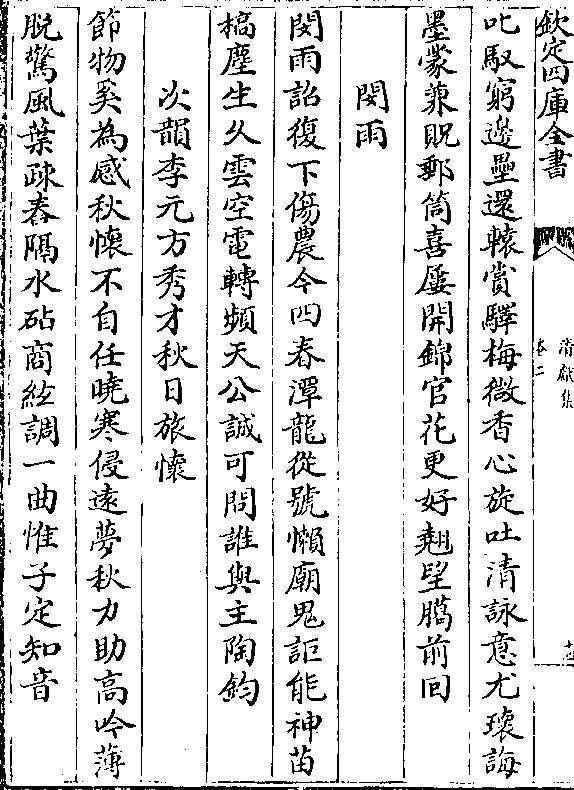 欽定四庫全書
清獻集
卷二
叱馭窮邊壘還轅賞驛梅微香心旋吐清詠意尤瓌誨
墨蒙兼貺郵筒喜屢開錦官花更好翹望臈前回
閔雨
閔雨詔復下傷農今四春潭龍從號懶廟鬼詎能神苗
槁塵生久雲空電轉頻天公誠可問誰與主陶鈞
次韻李元方秀才秋日旅懷
節物奚為感秋懷不自任曉寒侵遠夢秋力助高吟薄
脫驚風葉疎舂隔水砧商絃調一曲惟子定知音